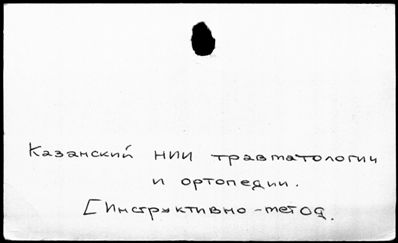 Казанский НИИ травматологии
и ортопедии.
[Инструктивно-метод.